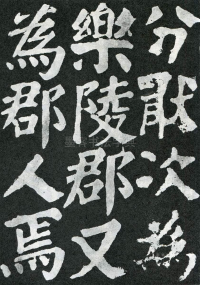 分厭次為
樂陵郡又
為郡人焉